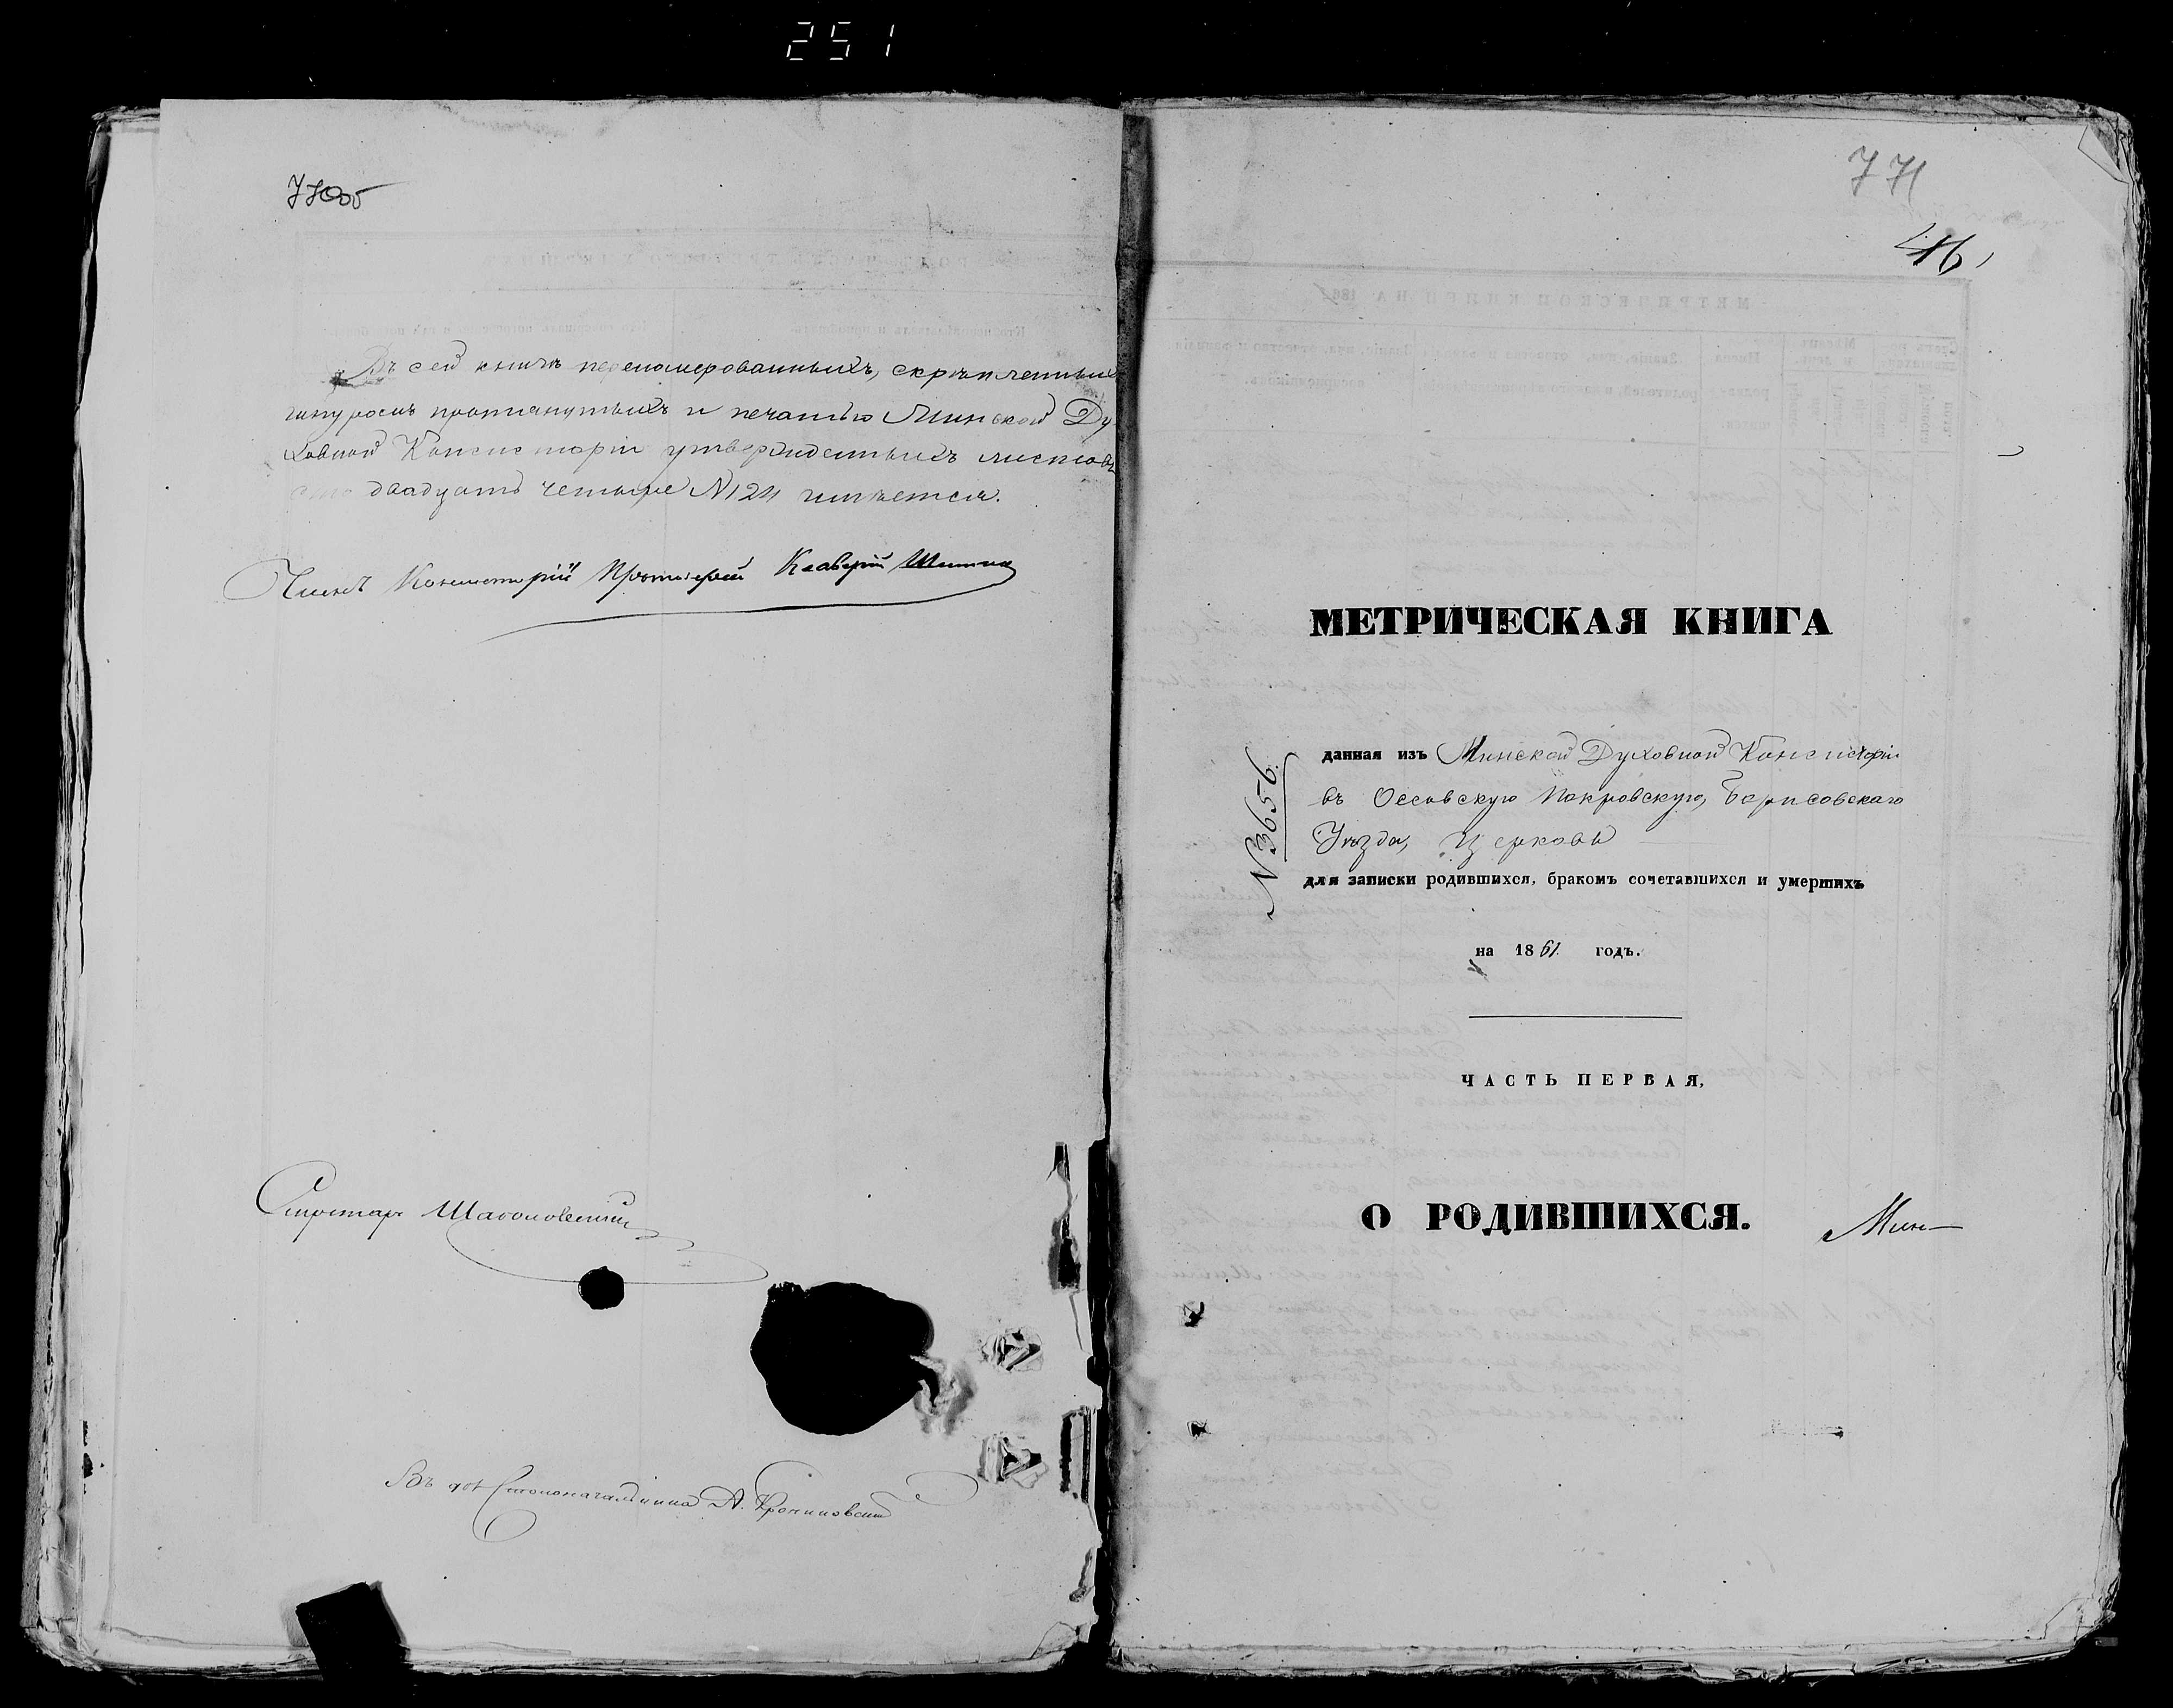 251
770об
Въ сей книгѣ перенумерованныхъ, скрѣпленныхъ
шнуромъ протянутыхъ и печатью Минской Ду
ховной Консисторіи утвержденныхъ листовъ
сто двадцать четыре N124 имѣется.
Членъ Консисторіи Протоіерей
Секретарь
Въ дол. Столоначальника А.
771
46,
МЕТРИЧЕСКАЯ КНИГА
N3656.
данная изъ Минской Духовной Консисторіи
въ Оссовскую Покровскую, Борисовскаго
Уѣзда, Церковь
для записки родившихся, бракомъ сочетавшихся и умершихъ
на 1861 годъ.
ЧАСТЬ ПЕРВАЯ,
О РОДИВШИХСЯ.
Мин—